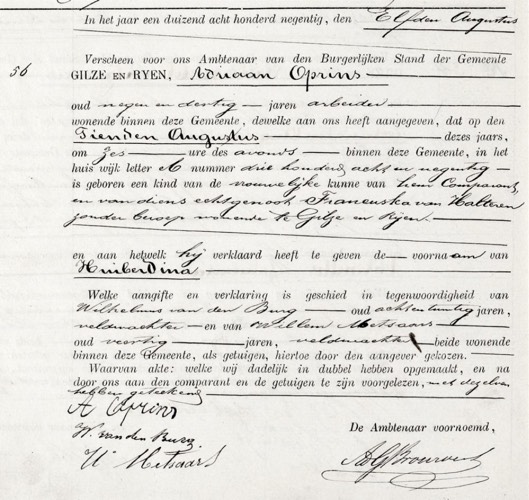 In het jaar een duizend acht honderd negentig, den Elfden Augustus
56
Verscheen voor ons Ambtenaar van den Burgerlijken Stand der Gemeente
GILZE EN RYEN, Adriaan Oprins
oud negen en dertig jaren arbeider
wonende binnen deze Gemeente, dewelke aan ons heeft aangegeven, dat op den
Tienden Augustus dezes jaars,
om zes ure des avonds binnen deze Gemeente, in het
huis wijk letter A nummer drie honderd acht en negentig
is geboren een kind van de vrouwelijke kunne van hem Comparant
en van diens echtgenoot Franciska van Halteren
zonder beroep wonende te Gilze en Rijen.
en aan hetwelk hij verklaard heeft te geven de voornaam van
Huiberdina
Welke aangifte en verklaring is geschied in tegenwoordigheid van
Wilhelmus van den Burg oud achtentwintig jaren,
veldwachter en van Willem Metsaars
oud veertig jaren, veldwachter beide wonende
binnen deze Gemeente, als getuigen, hiertoe door den aangever gekozen.
Waarvan akte: welke wij dadelijk in dubbel hebben opgemaakt, en na
door ons aan den comparant en de getuigen te zijn voorgelezen, met dezelven
hebben geteekend
A Oprins
W. van den Burg
W Metsaars
De Ambtenaar voornoemd,